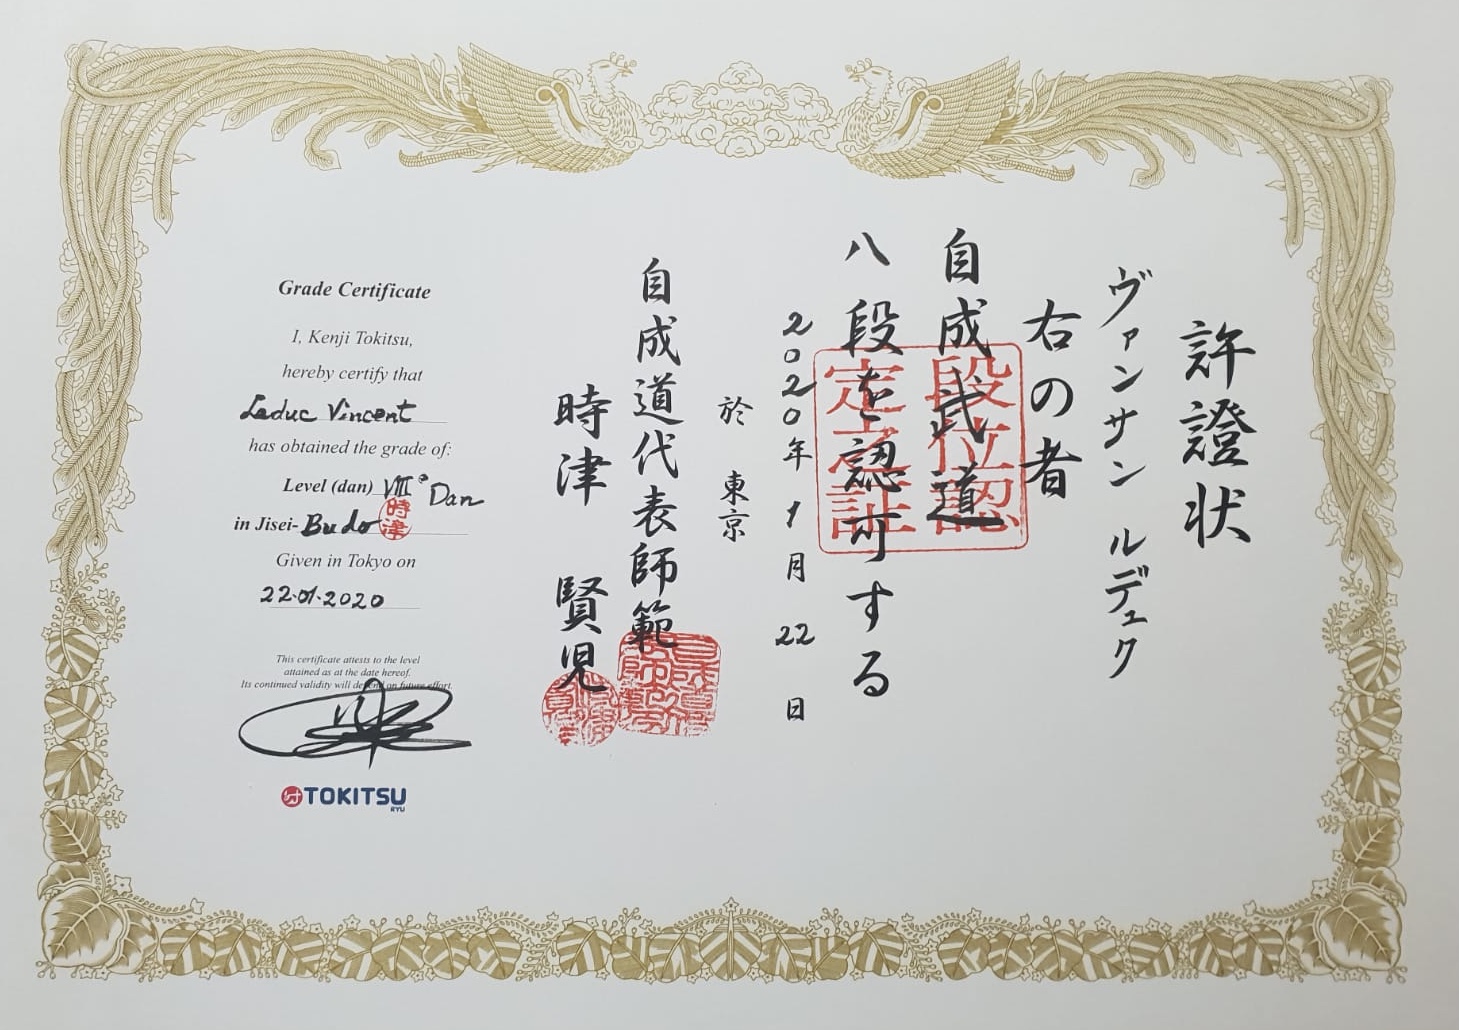 許證状
ヴァンサン ルデュク
右の者
自成武道
八段を認可する
段位認
定之証
2020年1月22日
於 東京
自成道代表師範
時津 賢児
Grade Certificate
I, Kenji Tokitsu,
hereby certify that
Leduc Vincent
has obtained the grade of:
Level (dan) VIIIe Dan
in Jisei-Budo
時津
Given in Tokyo on
22.01.2020
This certificate attests to the level
attained as at the date hereof.
Its continued validity will depend on future effort.
TOKITSU
RYU